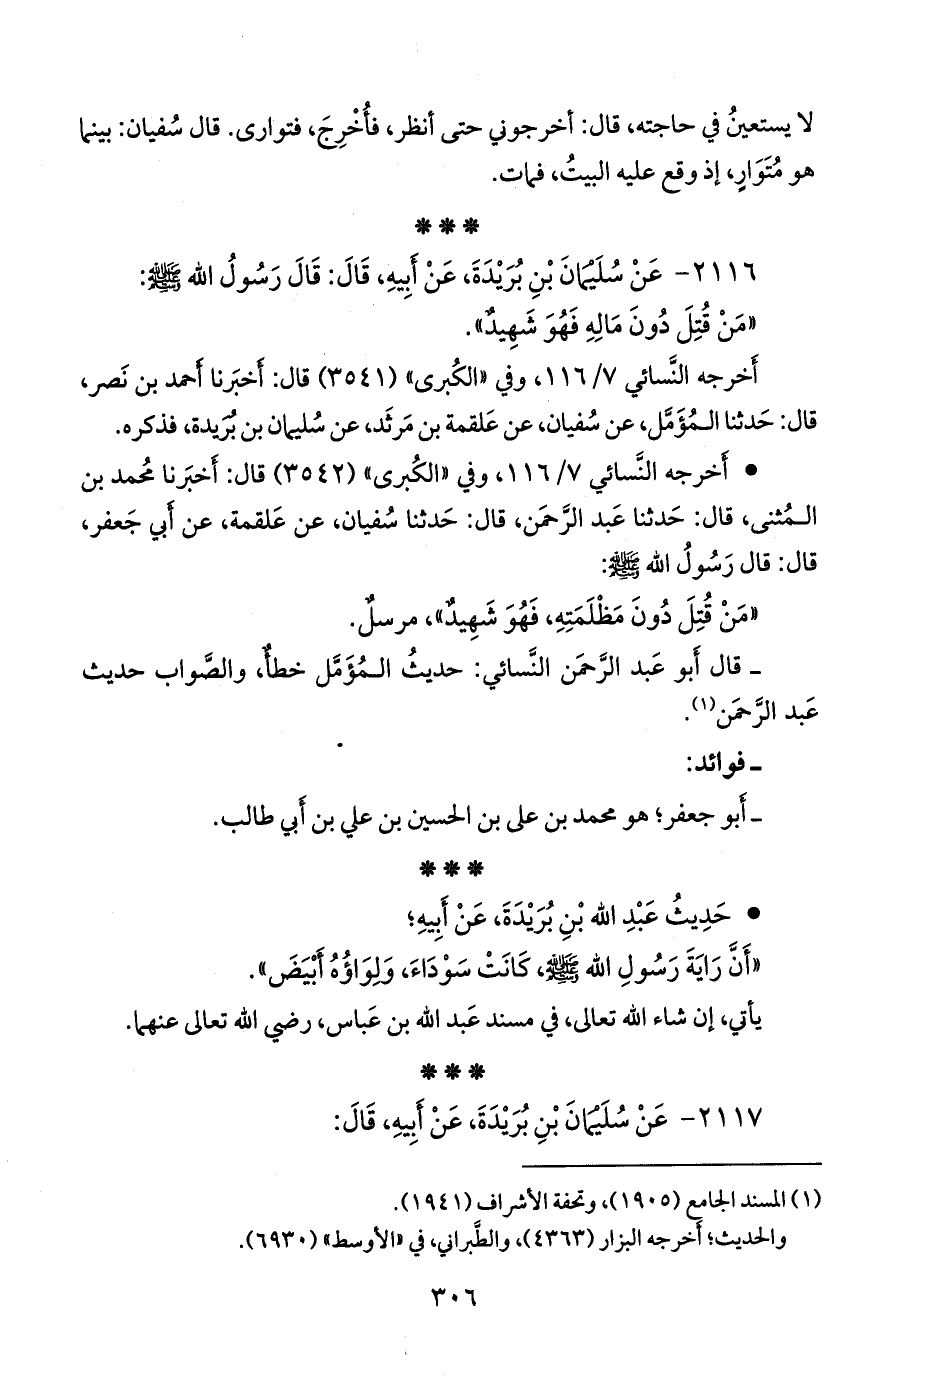 لا يستعينُ في حاجته، قال: أخرجوني حتى أنظر، فأُخْرِجَ، فتوارى. قال سُفيان: بينما
هو مُتَوَارٍ، إذ وقع عليه البيتُ، فمات.
***
٢١١٦- عَنْ سُلَيْمَانَ بْنِ بُرَيْدَةَ، عَنْ أَبِيهِ، قَالَ: قَالَ رَسُولُ الله ﷺ:
«مَنْ قُتِلَ دُونَ مَالِهِ فَهُوَ شَهِيدٌ».
أَخرجه النَّسائي ٧/ ١١٦، وفي «الكُبرى» (٣٥٤١) قال: أَخبَرنا أَحمد بن نَصر،
قال: حَدثنا الـمُؤَمَّل، عن سُفيان، عن عَلقمة بن مَرثَد، عن سُليمان بن بُرَيدة، فذكره.
• أَخرجه النَّسائي ٧/ ١١٦، وفي «الكُبرى» (٣٥٤٢) قال: أَخبَرنا مُحمد بن
الـمُثنى، قال: حَدثنا عَبد الرَّحمَن، قال: حَدثنا سُفيان، عن عَلقمة، عن أَبي جَعفر،
قال: قال رَسُولُ الله ﷺ:
«مَنْ قُتِلَ دُونَ مَظْلَمَتِهِ، فَهُوَ شَهِيدٌ»، مرسلٌ.
ـ قال أَبو عَبد الرَّحمَن النَّسائي: حديثُ الـمُؤَمَّل خطأٌ، والصَّواب حديث
عَبد الرَّحمَن(١).
ـ فوائد:
ـ أَبو جعفر؛ هو محمد بن علي بن الحسين بن علي بن أَبي طالب.
***
• حَدِيثُ عَبْدِ الله بْنِ بُرَيْدَةَ، عَنْ أَبِيهِ؛
«أَنَّ رَايَةَ رَسُولِ الله ﷺ، كَانَتْ سَوْدَاءَ، وَلِوَاؤُهُ أَبْيَضَ».
يأتي، إن شاء الله تعالى، في مسند عَبد الله بن عَباس، رضي الله تعالى عنهما.
***
٢١١٧- عَنْ سُلَيْمَانَ بْنِ بُرَيْدَةَ، عَنْ أَبِيهِ، قَالَ:
(١) المسند الجامع (١٩٠٥)، وتحفة الأشراف (١٩٤١).
والحديث؛ أَخرجه البزار (٤٣٦٣)، والطَّبراني، في «الأوسط» (٦٩٣٠).
٣٠٦